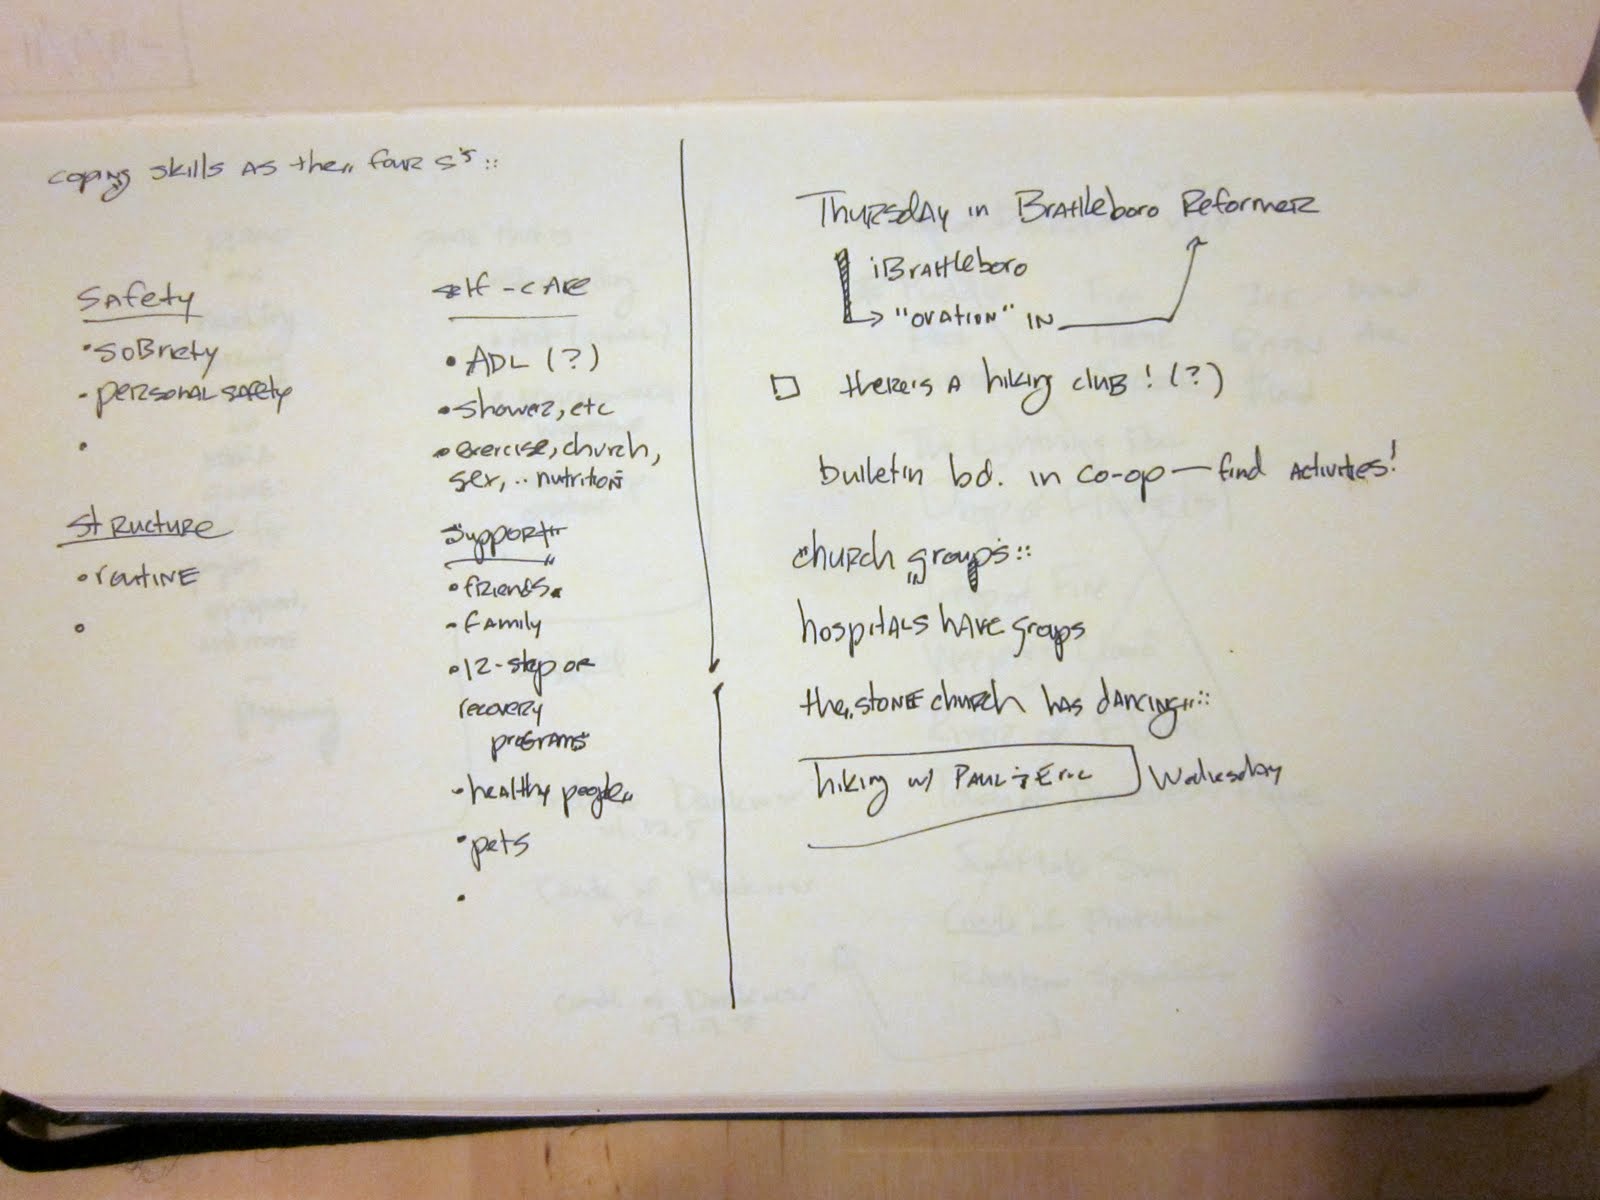 coping skills as the,, four s's::
Safety
• sobriety
• personal safety
•
Structure
• routine
•
self-care
• ADL (?)
• shower, etc
• exercise, church,
sex, .. nutrition
Support
• friends.
• family
• 12-step or
recovery
programs
• healthy people,,
• pets
•
Thursday in Brattleboro Reformer
iBrattleboro
"OVATION" IN
□ there's a hiking club! (?)
bulletin bd. in co-op — find activities!
church groups::
hospitals have groups
the,, stone church has dancing,,::
hiking w/ Paul & Eric Wednesday